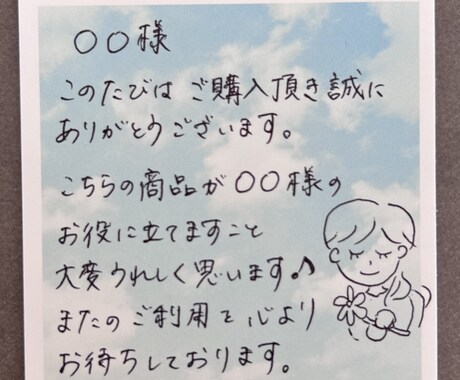 ○○様
このたびは ご購入頂き誠に
ありがとうございます。
こちらの商品が○○様の
お役に立てますこと
大変うれしく思います♪
またのご利用を心より
お待ちしております。